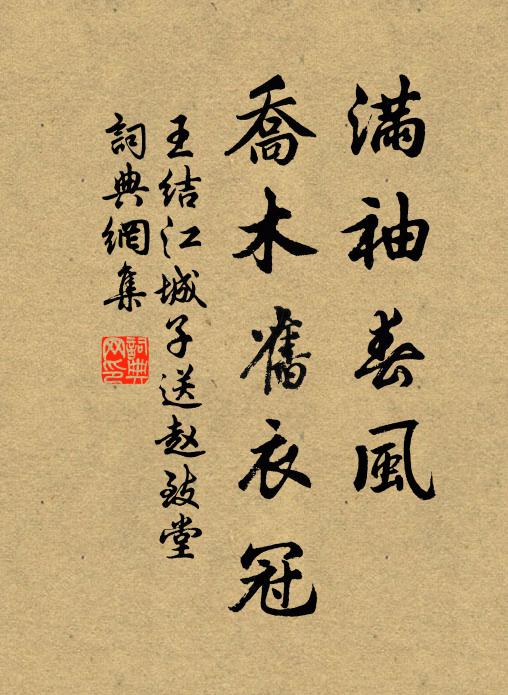 滿袖春風
喬木舊衣冠
王結江城子送赵致堂
詞典網集
詞典
网印